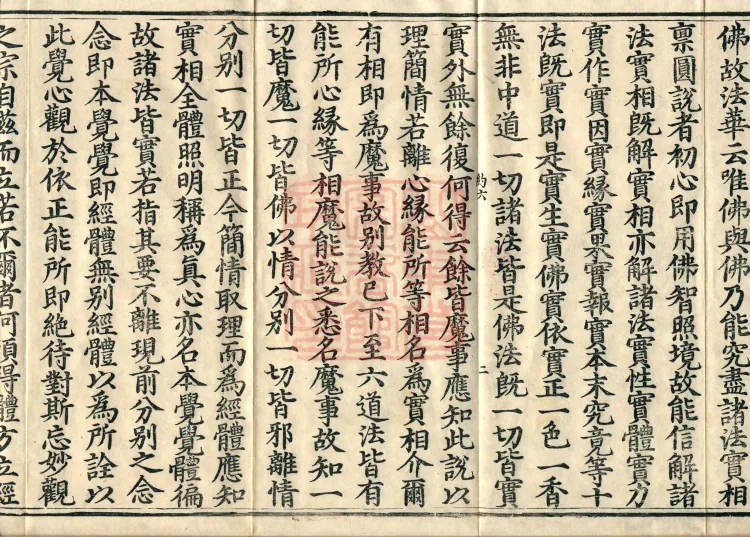 佛故法華云唯佛與佛乃能究盡諸法實相
禀圓說者初心即用佛智照境故能信解諸
法實相旣解實相亦解諸法實性實體實力
實作實因實緣實果實報實本末究竟等十
法旣實即是實生實佛實依實正一色一香
無非中道一切諸法皆是佛法旣一切皆實
約六
二
實外無餘復何得云餘皆魔事應知此說以
理簡情若離心緣能所等相名爲實相介爾
有相即爲魔事故別教已下至六道法皆有
能所心緣等相魔能說之悉名魔事故知一
切皆魔一切皆佛以情分別一切皆邪離情
分別一切皆正今簡情取理而爲經體應知
實相全體照明稱爲眞心亦名本覺覺體徧
故諸法皆實若指其要不離現前分別之念
念即本覺覺即經體無別經體以爲所詮以
此覺心觀於依正能所即絕待對斯忘妙觀
之宗自兹而立若不爾者何須得體方立經